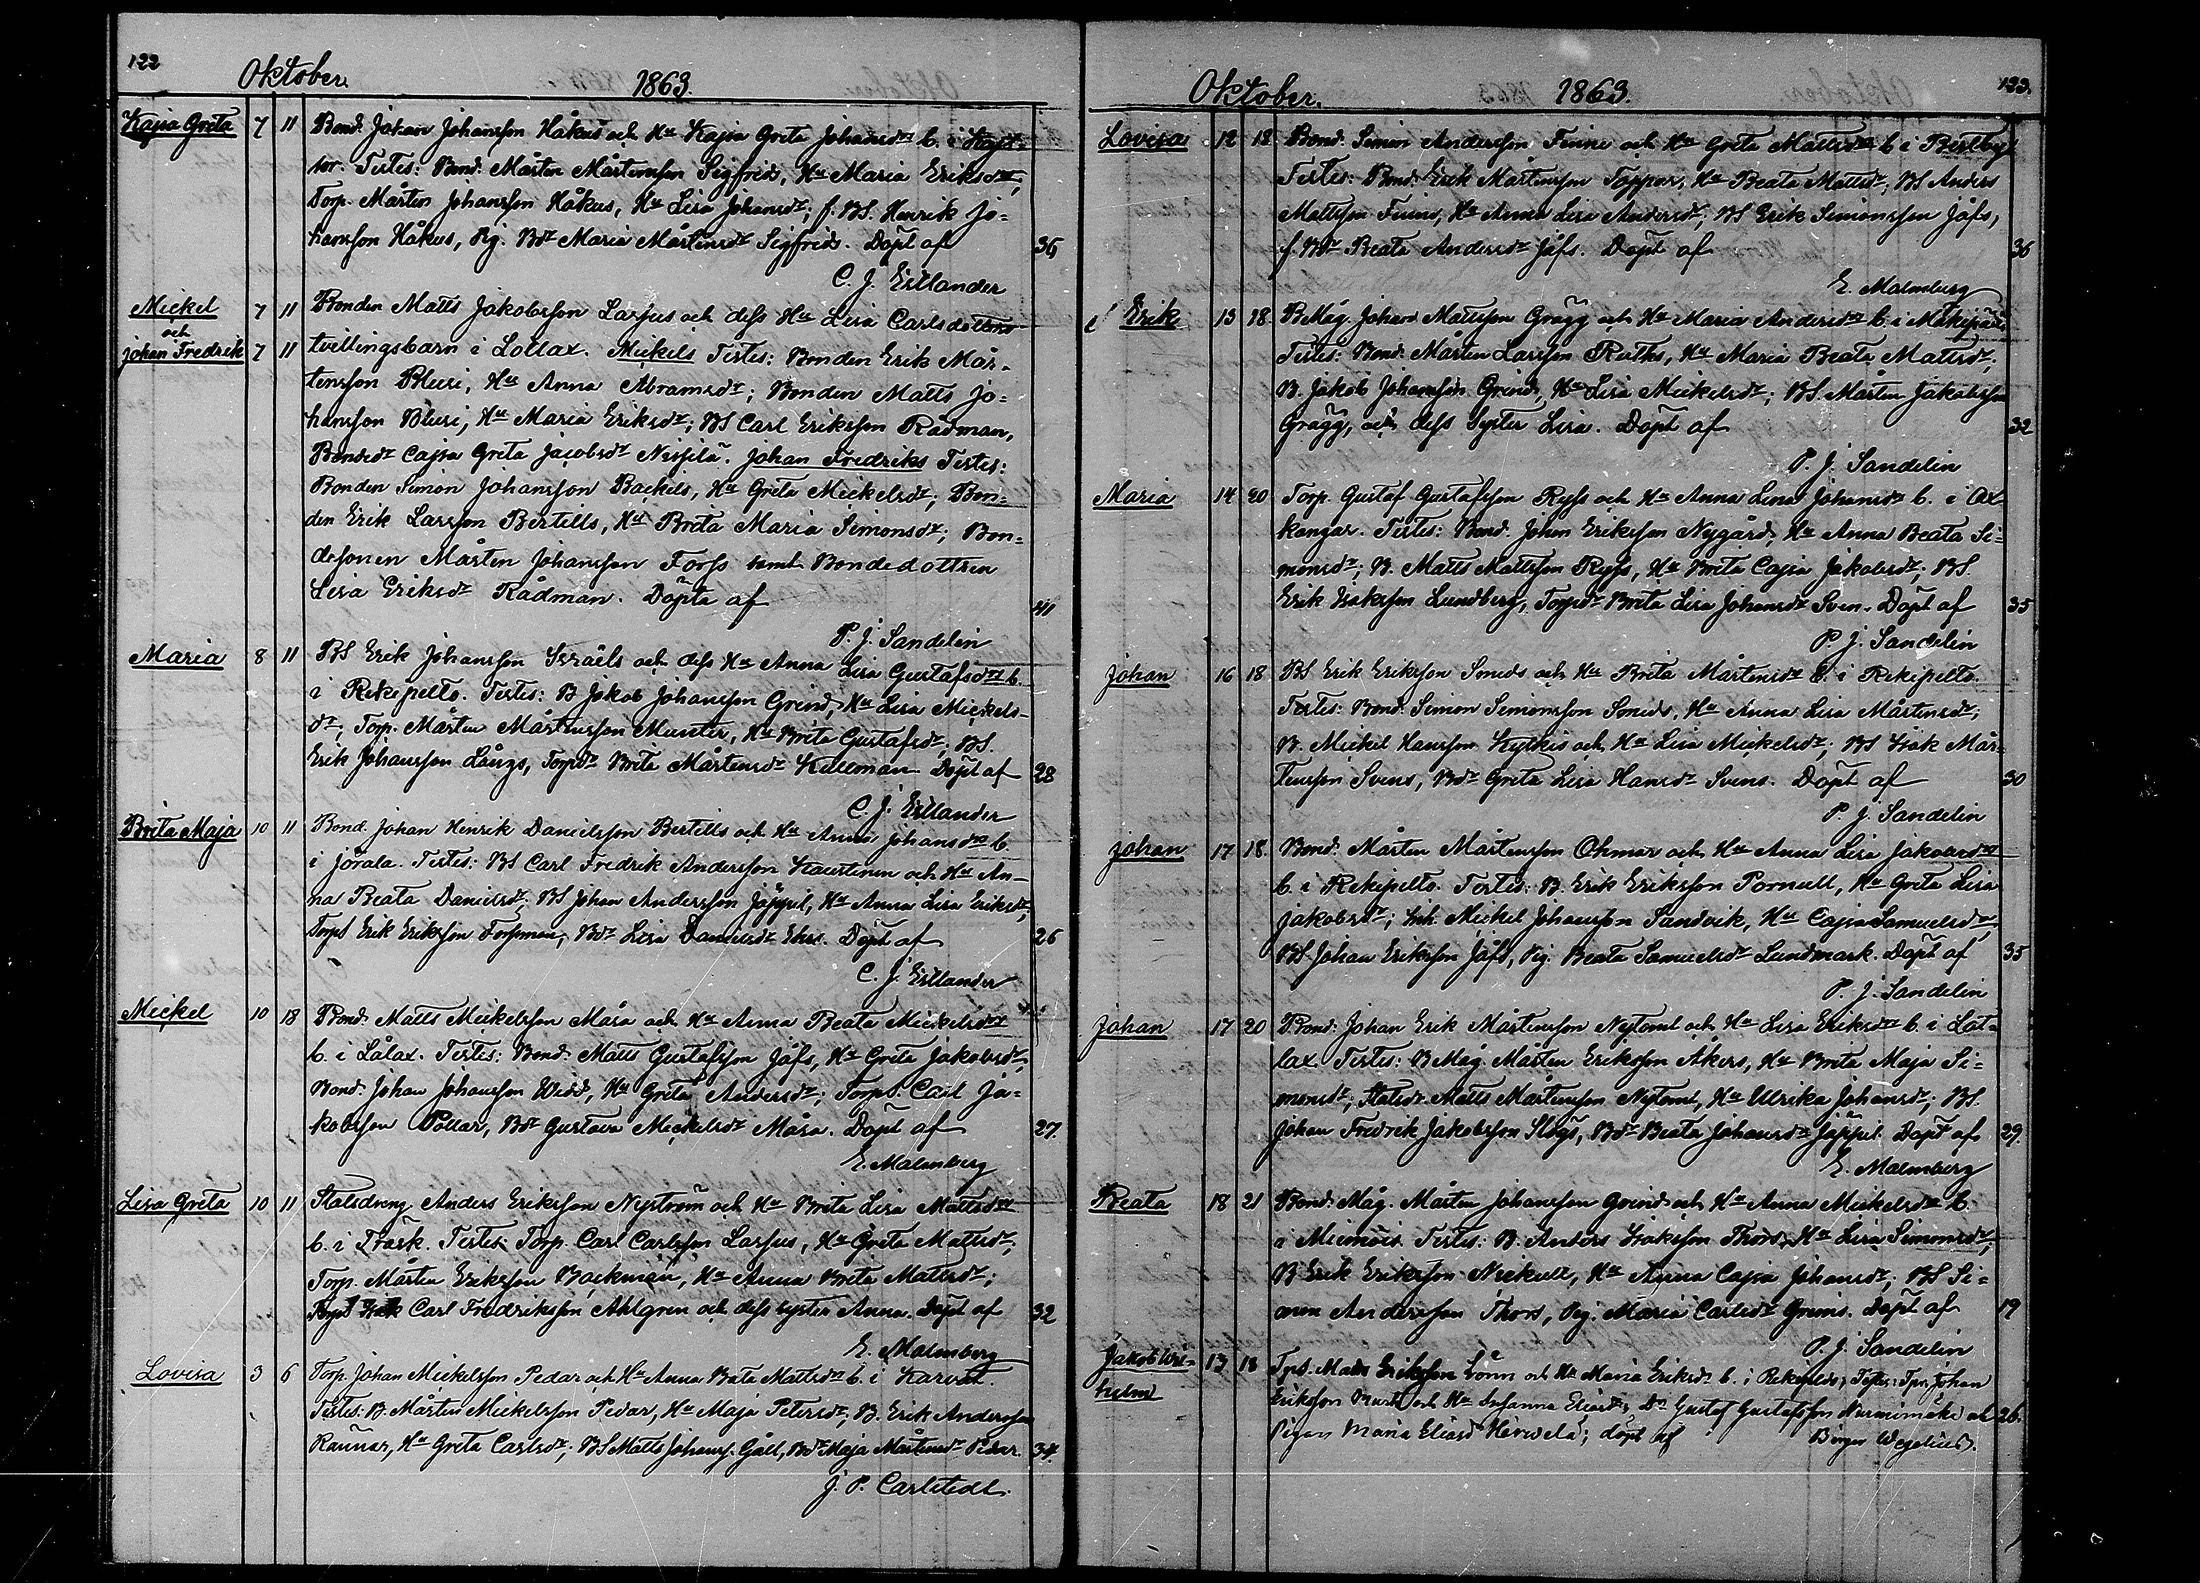 122
Oktober. 1863.
Kajsa Greta 7 11 Bond. Johan Johansson Håkus och Hu Kajsa Greta Johansdrs b. i
tor. Testes: Bond. Mårten Mårtensson Sigfreds, Hu Maria Eriksdr,
Torp. Mårten Johansson Håkus, Hu Lisa Johansdr, f. BS. Henrik Jo=
hansson Håkus, Pig. Bdr Maria Mårtensdr Sigfreds. Döpt af 36
C. J. Estlander
Mickel 7 11 Bonden Matts Jakobsson Lassus och dess Hu Lisa Carlsdotters
och
Johan Fredrik 7 11 tvillingsbarn i Lollax. Mickels Testes: Bonden Erik Mår-
tensson Blusi, Hu Anna Abramsdr; Bonden Matts Jo=
hansson Blusi, Hu Maria Eriksdr; BS Carl Eriksson Rådman,
Bondedr Cajsa Greta Jacobsdr Nissilä. Johan Fredriks Testes:
Bonden Simon Johansson Backels, Hu Greta Mickelsdr; Bon=
den Erik Larsson Bertills, Hu Brita Maria Simonsdr; Bon=
desonen Mårten Johansson Forss samt Bondedottren
Lisa Eriksdr Rådman. Döpta af 41
P. J. Sandelin
Maria 8 11 BS Erik Johansson Israels och dess Hu Anna Lisa Gustafsdrs b.
i Rekipelto. Testes: B Jakob Johansson Grind, Hu Lisa Mickels-
dr, Torp. Mårten Mårtensson Munter, Hu Brita Gustafsdr. BS.
Erik Johansson Långs, Torpdr Brita Mårtensdr Kulleman. Döpt af 28
C. J. Estlander
Brita Maja 10 11 Bond. Johan Henrik Danielsson Bertills och Hu Anna Johansdrs b.
i Jorala. Testes: BS Carl Fredrik Andersson Kaurtinen och Hu An-
na Beata Danielsdr; BS Johan Andersson Jåppil, Hu Anna Lisa Eriksdr,
Torps Erik Eriksson Forsman, Bdr Lisa Danielsdr Döpt af 26
C. J. Estlander
Mickel 10 18 Bond. Matts Mickelsson Måsa och Hu Anna Beata Mickelsdrs
b. i Lålax. Testes: Bond. Matts Gustafsson Jåfs, Hu Greta Jakobsdr,
Bond. Johan Johansson Widd, Hu Greta Andersdr; Torps. Carl Ja=
kobsson Pollar, Bdr Gustava Mickelsdr Måsa. Döpt af 27.
E. Malmberg
Lisa Greta 10 11 Statsdreng Anders Eriksson Nyström och Hu Brita Lisa Mattsdrs
b. i Träsk. Testes: Torp. Carl Carlsson Lassus, Hu Greta Mattsdr,
Torp. Mårten Eriksson Backman, Hu Anna Brita Mattsdr;
Carl Fredriksson Ahlgren och dess syster Anna. Döpt af 32
E. Malmberg
Lovisa 3 6 Torp. Johan Mickelsson Pedar och Hu Anna Beata Mattsdrs b. i Karvat.
Testes: B. Mårten Mickelsson Pedar, Hu Maja Petersdr, B. Erik Andersson
Raunar, Hu Greta Carlsdr; BS Matts Johanss. Gåll, Bdr Maja Mårtensdr Pedar. 34.
J. P. Carlstedt.
Oktober. 1863. 123.
Lovisa 12 18 Bond. Simon Andersson Finne och Hu Greta Mattsdrs b i Bertby
Testes: Bond. Erik Mårtensson Toppar, Hu Beata Mattsdr; BS Anders
Mattsson Finne, Hu Anna Lisa Andersdr, BS Erik Simonsson Jåfs,
f. Bdr Beata Andersdr Jåfs. Döpt af 36
E. Malmberg
Erik 13 18 BMåg. Johan Mattsson Grägg och Hu Maria Andersdrs b. i Måkipää
Testes: Bond. Mårten Larsson Ruths, Hu Maria Beata Mattsdr,
B. Jakob Johansson Grind, Hu Lisa Mickelsdr; BS. Mårten Jakobsson
Grägg, och dess Syster Lisa. Döpt af 32
P. J. Sandelin
Maria 14 20 Torp. Gustaf Gustafsson Ryss och Hu Anna Lisa Johansdrs b. i Ox-
kangar. Testes: Bond. Johan Eriksson Nygård, Hu Anna Beata Si=
monsdr; B. Matts Mattsson Ryss, Hu Brita Cajsa Jakobsdr; BS.
Erik Isaksson Lundberg, Torpdr Brita Lisa Johansdr Sven. Döpt af 35
P. J. Sandelin
Johan 16 18 BS Erik Eriksson Smeds och Hu Brita Mårtensdrs b. i Rekipelto.
Testes: Bond. Simon Simonsson Smeds, Hu Anna Lisa Mårtensdr,
B. Mickel Hansson Kytkis och Hu Lisa Mickelsdr; BS Isak Mår-
tensson Svens, Bdr Greta Lisa Hansdr Svens. Döpt af 30
P. J. Sandelin
Johan 17 18. Bond. Mårten Mårtensson Ohmar och Hu Anna Lisa Jakobsdrs
b. i Rekipelto. Testes: B. Erik Eriksson Pornull, Hu Greta Lisa
Jakobsdr; Inh. Mickel Johansson Sandvik, Hu Cajsa Samuelsdr,
BS Johan Eriksson Jåfs, Pig. Beata Samuelsdr Lundmark. Döpt af 35
P. J. Sandelin
Johan 17 20 Bond. Johan Erik Mårtensson Nytomt och Hu Lisa Eriksdrs b. i Lål-
lax Testes: BMåg. Mårten Eriksson Åkers, Hu Brita Maja Si=
monsdr; Statsdr Matts Mårtensson Nytomt, Hu Ulrika Johansdr; BS.
Johan Fredrik Jakobsson Slögs, Bdr Beata Johansdr Jåppil. Döpt af 29.
E. Malmberg
Beata 18 21 Bond. Måg. Mårten Johansson Grind och Hu Anna Mickelsdrs b.
i Miemois. Testes: B. Anders Isaksson Thors, Hu Lisa Simonsdr,
B Erik Eriksson Neckull, Hu Anna Cajsa Johansdr; BS Si=
mon Andersson Thors, Pig. Maria Carlsdr Greins. Döpt af 19
P. J. Sandelin
Jakob Wil- 13 18 Tps. Matts Eriksson Lönn och Hu Maria Eriksdr b. i Rekipelto; Testes: Tpr. Johan
helm Eriksson och Hu Susanna Eliasdr, Dr Gustaf Gustafsson Nurmimäki och 26.
Pigan Maria Eliasdr; döpt af Birger Wegelius.